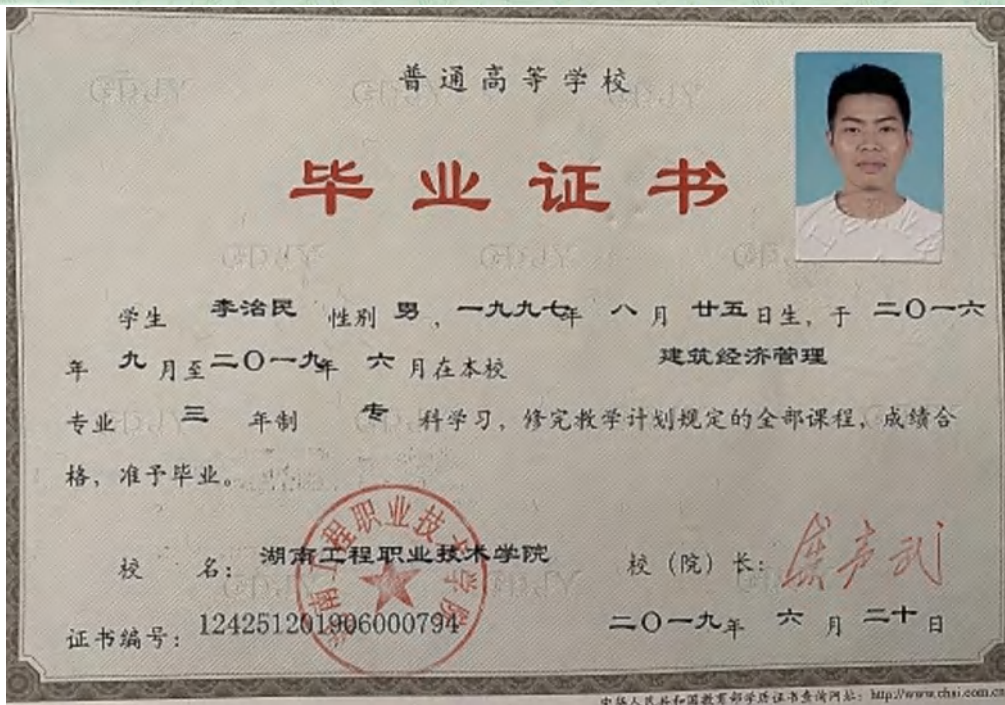 普通高等学校
毕业证书
学生 李治民 性别 男，一九九七年 八月 廿五日生，于 二〇一六
年 九月至二〇一九年 六月在本校 建筑经济管理
专业 三 年制 专 科学习，修完教学计划规定的全部课程，成绩合
格，准予毕业。
校 名：湖南工程职业技术学院 校（院）长：
湖南工程职业技术学院
证书编号：124251201906000794 二〇一九年 六月 二十日
中华人民共和国教育部学历证书查询网址：http://www.chsi.com.cn